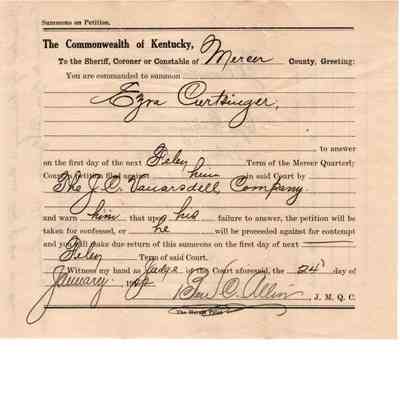 Summons on Petition.
The Commonwealth of Kentucky,
To the Sheriff, Coroner or Constable of Mercer County, Greeting:
You are commanded to summon
Ezra Curtsinger,
to answer
on the first day of the next Feby Term of the Mercer Quarterly
Court a petition filed against him in said Court by
The J. C. Vanarsdell Company.
and warn him that upon his failure to answer, the petition will be
taken for confessed, or he will be proceeded against for contempt
and you will make due return of this summons on the first day of next
Feby Term of said Court.
Witness my hand as Judge of the Court aforesaid, the 24 day of
January. Ben C. Allin, J. M. Q. C.
The Herald Print